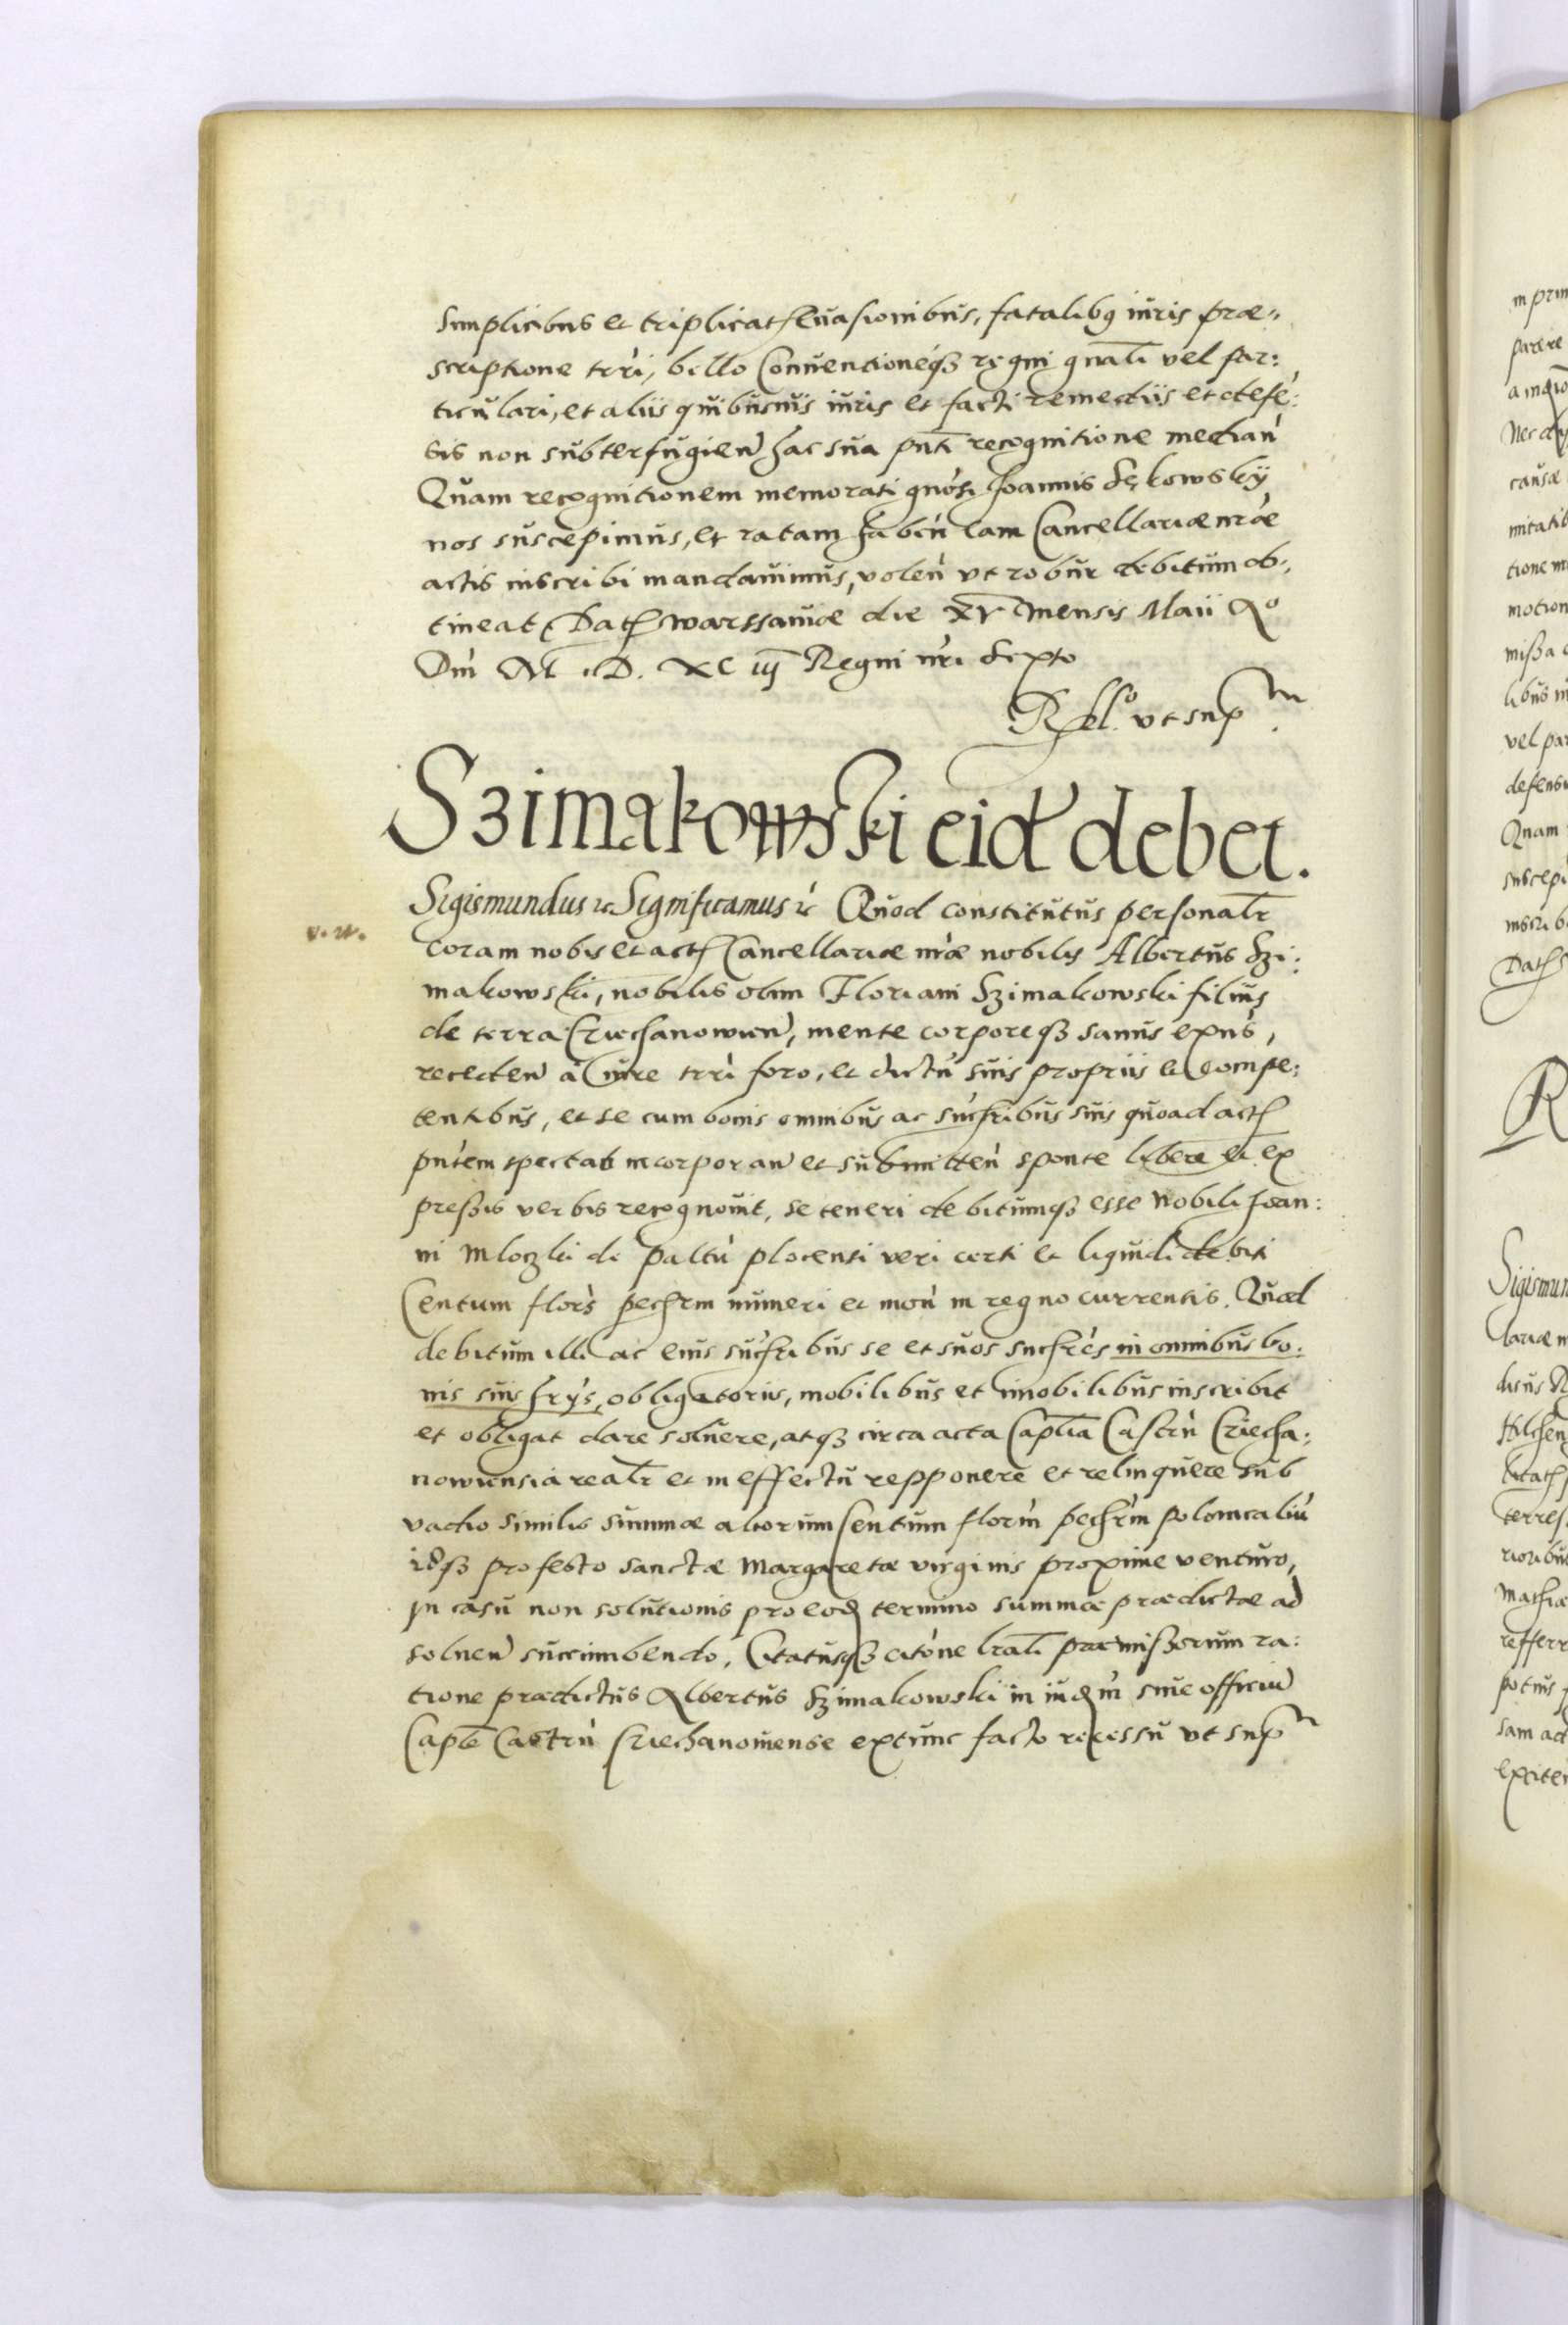 simplicibus et triplicat euasionibus, fatalibq iuris præ„
scriptione trri, bello Conuentioneq3 regni gnali vel par:
ticulari, et aliis quibusuis iuris et facti remediis et defē:
sis non subterfugien hac sua pnti recognitione median
Quam recognitionem memorati gnosi Joannis Sękowsky
nos suscepimus, et ratam haben eam Cancellariæ nræ
actis inscribi mandauimus, volen vt robur debitum ob:
tineat Dat Warssauiæ die XV mensis Maii Ao
Dni M D. XC iij Regni nri Sexto
Relo vt sup
Szimakowski eid debet.
Sigismundus &c Significamus &c Quod constitutus personalr
v. u.
coram nobis et act Cancellariæ nræ nobilis Albertus Szi:
makowski, nobilis olim Floriani Szimakowski filius
de terra Cziechanowien, mente corporeq3 sanus exñs,
receden a iure trri foro, et dictu suis propriis et compe:
tentibus, et se cum bonis omnibus ac suchribus suis quoad act
pntem spectab incorporan et submitten sponte libere et ex
pressis verbis recognouit, se teneri debitumq3 esse Nobili Joan:
ni Mloczki de Paltu plocensi veri certi et liquidi debiti
Centum flors pechrm numeri et mon in regno currentis. Quod
debitum illi ac eius suchribus se et suos suchres in omnibus bo:
nis suis hrys, obligatoriis, mobilibus et imobilibus inscribit
et obligat dare soluere, atq3 circa acta Caplia Castrn Cziecha:
nowiensia realr et in effectu repponere et relinquere sub
vadio similis summæ aliorum Centum florm pechrm polonicaliu
idq3 pro festo sanctæ Margaretæ virginis proxime venturo,
In casu non solutionis pro eod termino summæ prædictæ ad
soluen succumbendo, Citatusq3 citone lrali præmissorum ra:
tione prædictus Albertus Szimakowski in iudm siue officiu
Caple Castrn Cziechanouiense extunc facto recessu vt sup